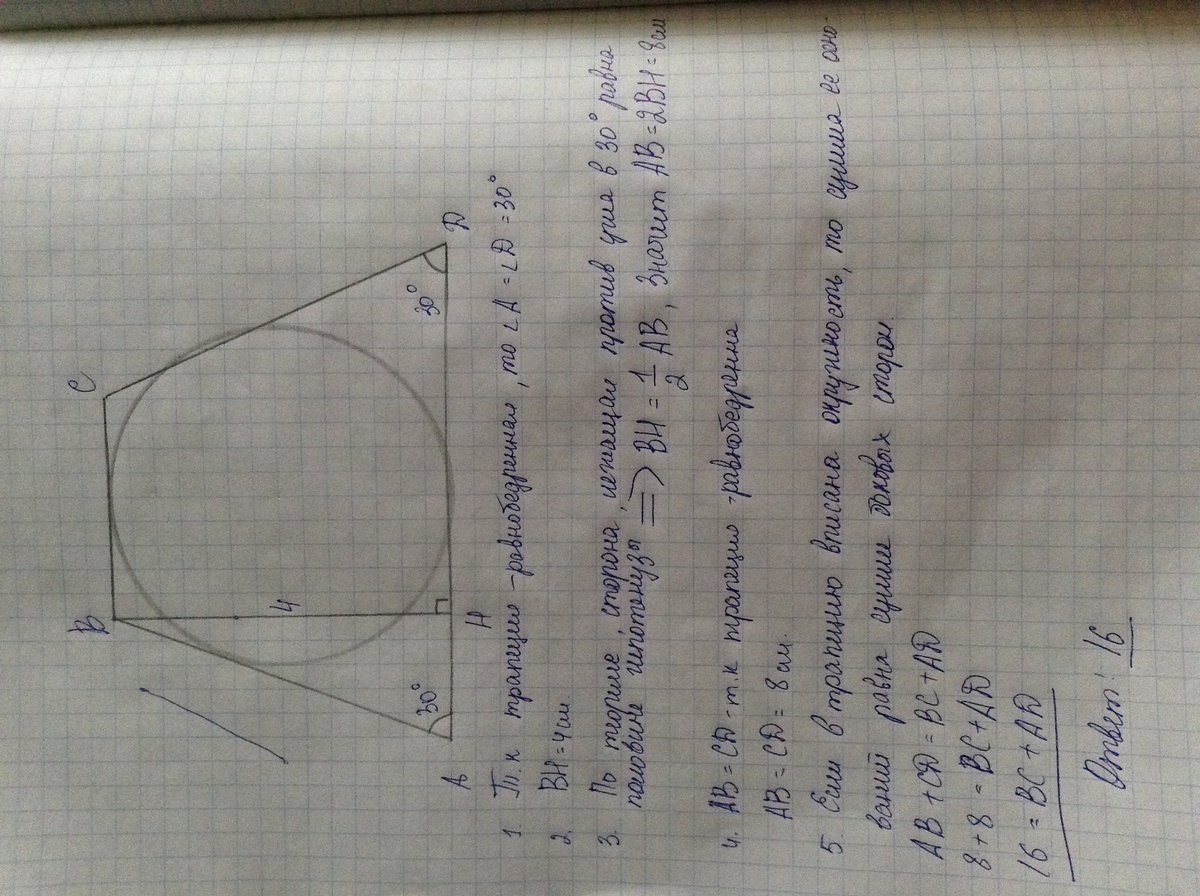 B
C
4
30°
30°
A
H
D
1. Т.к трапецию -равнобедренная, то ∠A = ∠D = 30°
2. BH = 4см
3. По теории, сторона, лежащая против угла в 30° равна
половине гипотонузы => BH = 1/2 AB, Значит AB = 2BH = 8см
4. AB = CD - т.к трапецию -равнобедренна
AB = CD = 8 см.
5. Если в трапицию вписана окружность, то сумма ее осно-
ваний равна сумме боковых сторон.
AB + CD = BC + AD
8 + 8 = BC + AD
16 = BC + AD
Ответ: 16